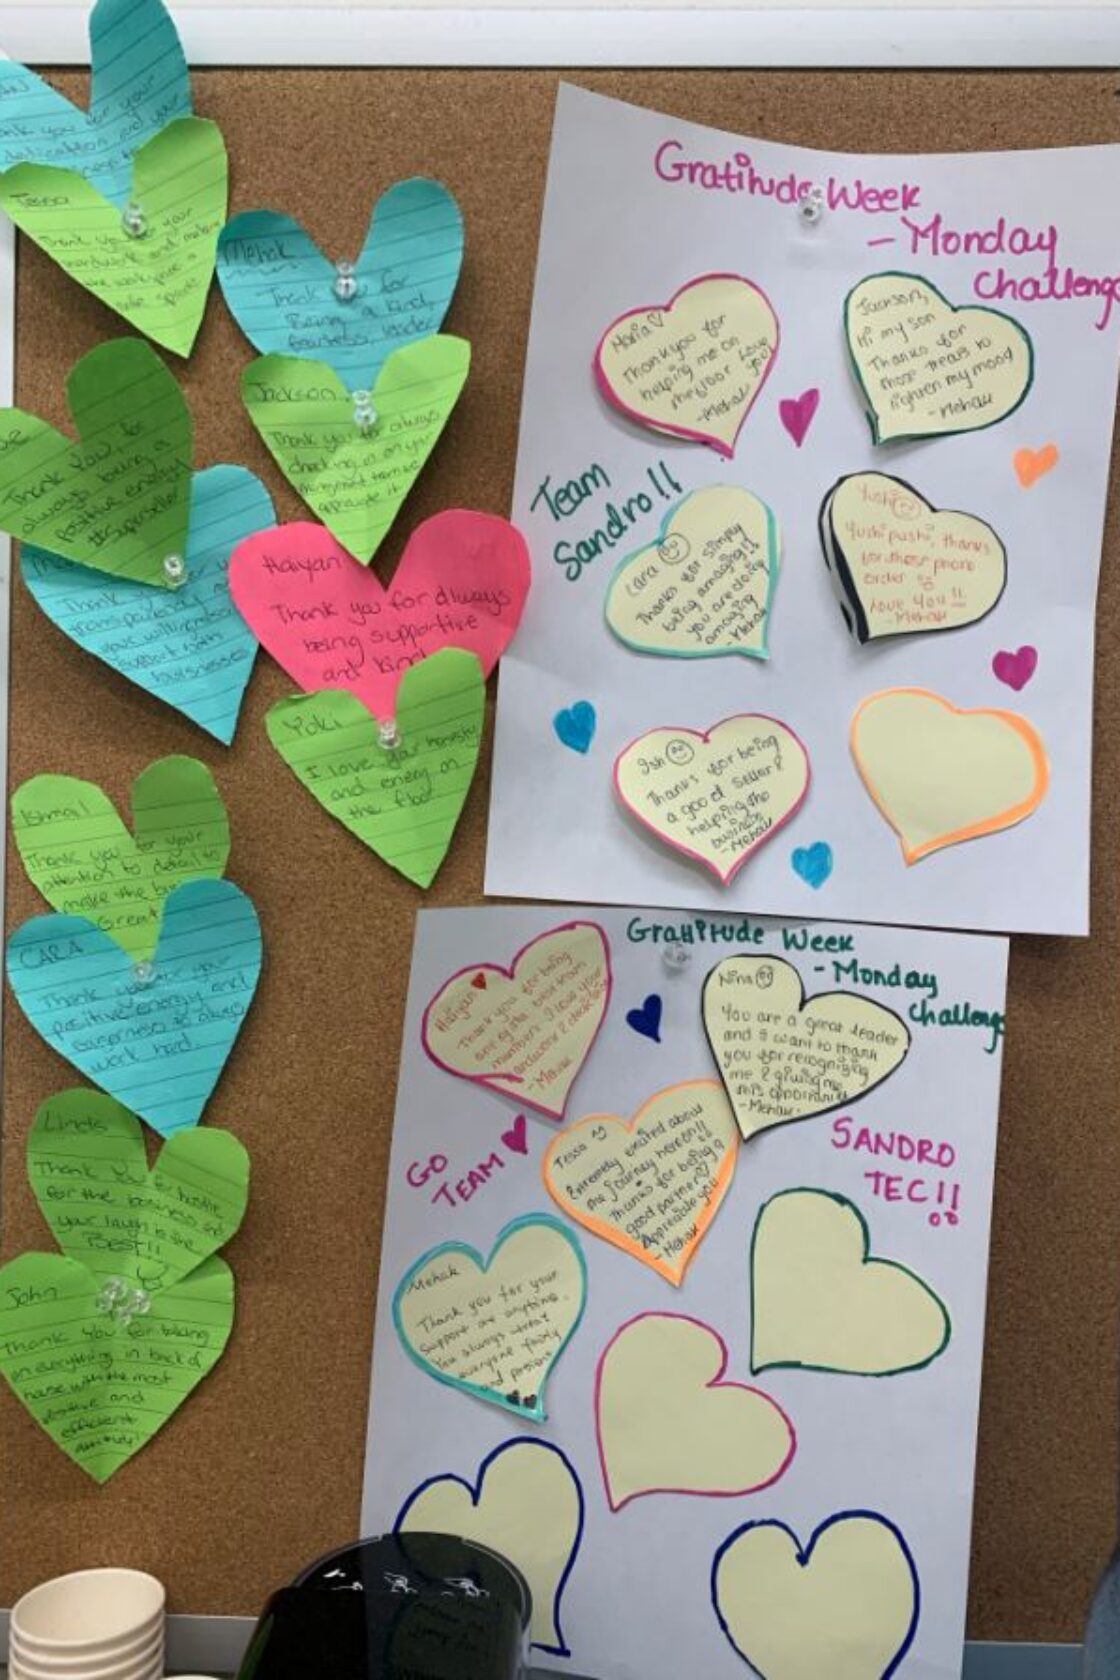 Thank you for your
dedication and your
Tessa
Thank you for your
hardwork and making
the workplace a
safe space
Mehak
Thank you for
Being a kind,
fearless, leader
Jackson
Thank you for always
checking in on your
appreciate it
Thank You for
always being a
positive energy
#superseller
Thank
your willing
support with
businesses
Haiyan
Thank you for always
being supportive
and kind
Yuki
I love your honesty
and energy on
the floor
Ismail
Thank you for your
attention to detail to
make the
Great
CARA
Thank you for your
positive energy and
eagerness to always
work hard.
Linda
Thank You for
for the business and
your laugh is the
BEST!!
John
Thank You for taking
on everything in back of
house with the most
positive and
efficient
attitude!
Gratitude Week
- Monday
Challenge
Maria
Thank you for
helping me on
the floor Love
you!
-Mehak
Jackson,
Hi my son
Thanks for
those treats to
lighten my mood
- Mehak
Team
Sandro!!
Cara
Thanks for simply
being amazing!!
you are doing
amazing
- Mehak
Yushi
Yushi pushi, thanks
for those phone
order
Love You!!
- Mehak
Ish
Thanks for being
a good seller &
helping the
business
- Mehak
Gratitude Week
- Monday
Challenge
Haiyan
Thank you for being
one of the
I love your
- Mehak
Nina
You are a great leader
and I want to thank
you for recognizing
me & giving me
this opportunity
- Mehak
GO
TEAM
Tessa
Extremely excited about
the journey hereon!!
Thanks for being a
good partner
Appreciate you
- Mehak
SANDRO
TEC!!
Mehak
Thank you for your
support anytime.
You always treat
everyone fairly
and